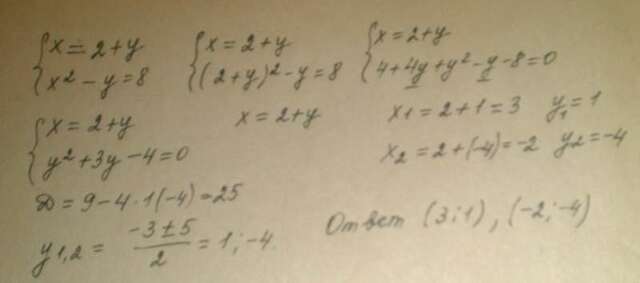 x = 2+y
x² - y = 8
x = 2+y
(2+y)² - y = 8
x = 2+y
4+4y+y²-y-8=0
x = 2+y
y²+3y-4=0
x = 2+y
x1 = 2+1 = 3 y1 = 1
x2 = 2+(-4) = -2 y2 = -4
D = 9-4·1(-4) = 25
y1,2 = (-3±5)/2 = 1; -4
Ответ (3;1), (-2;-4)